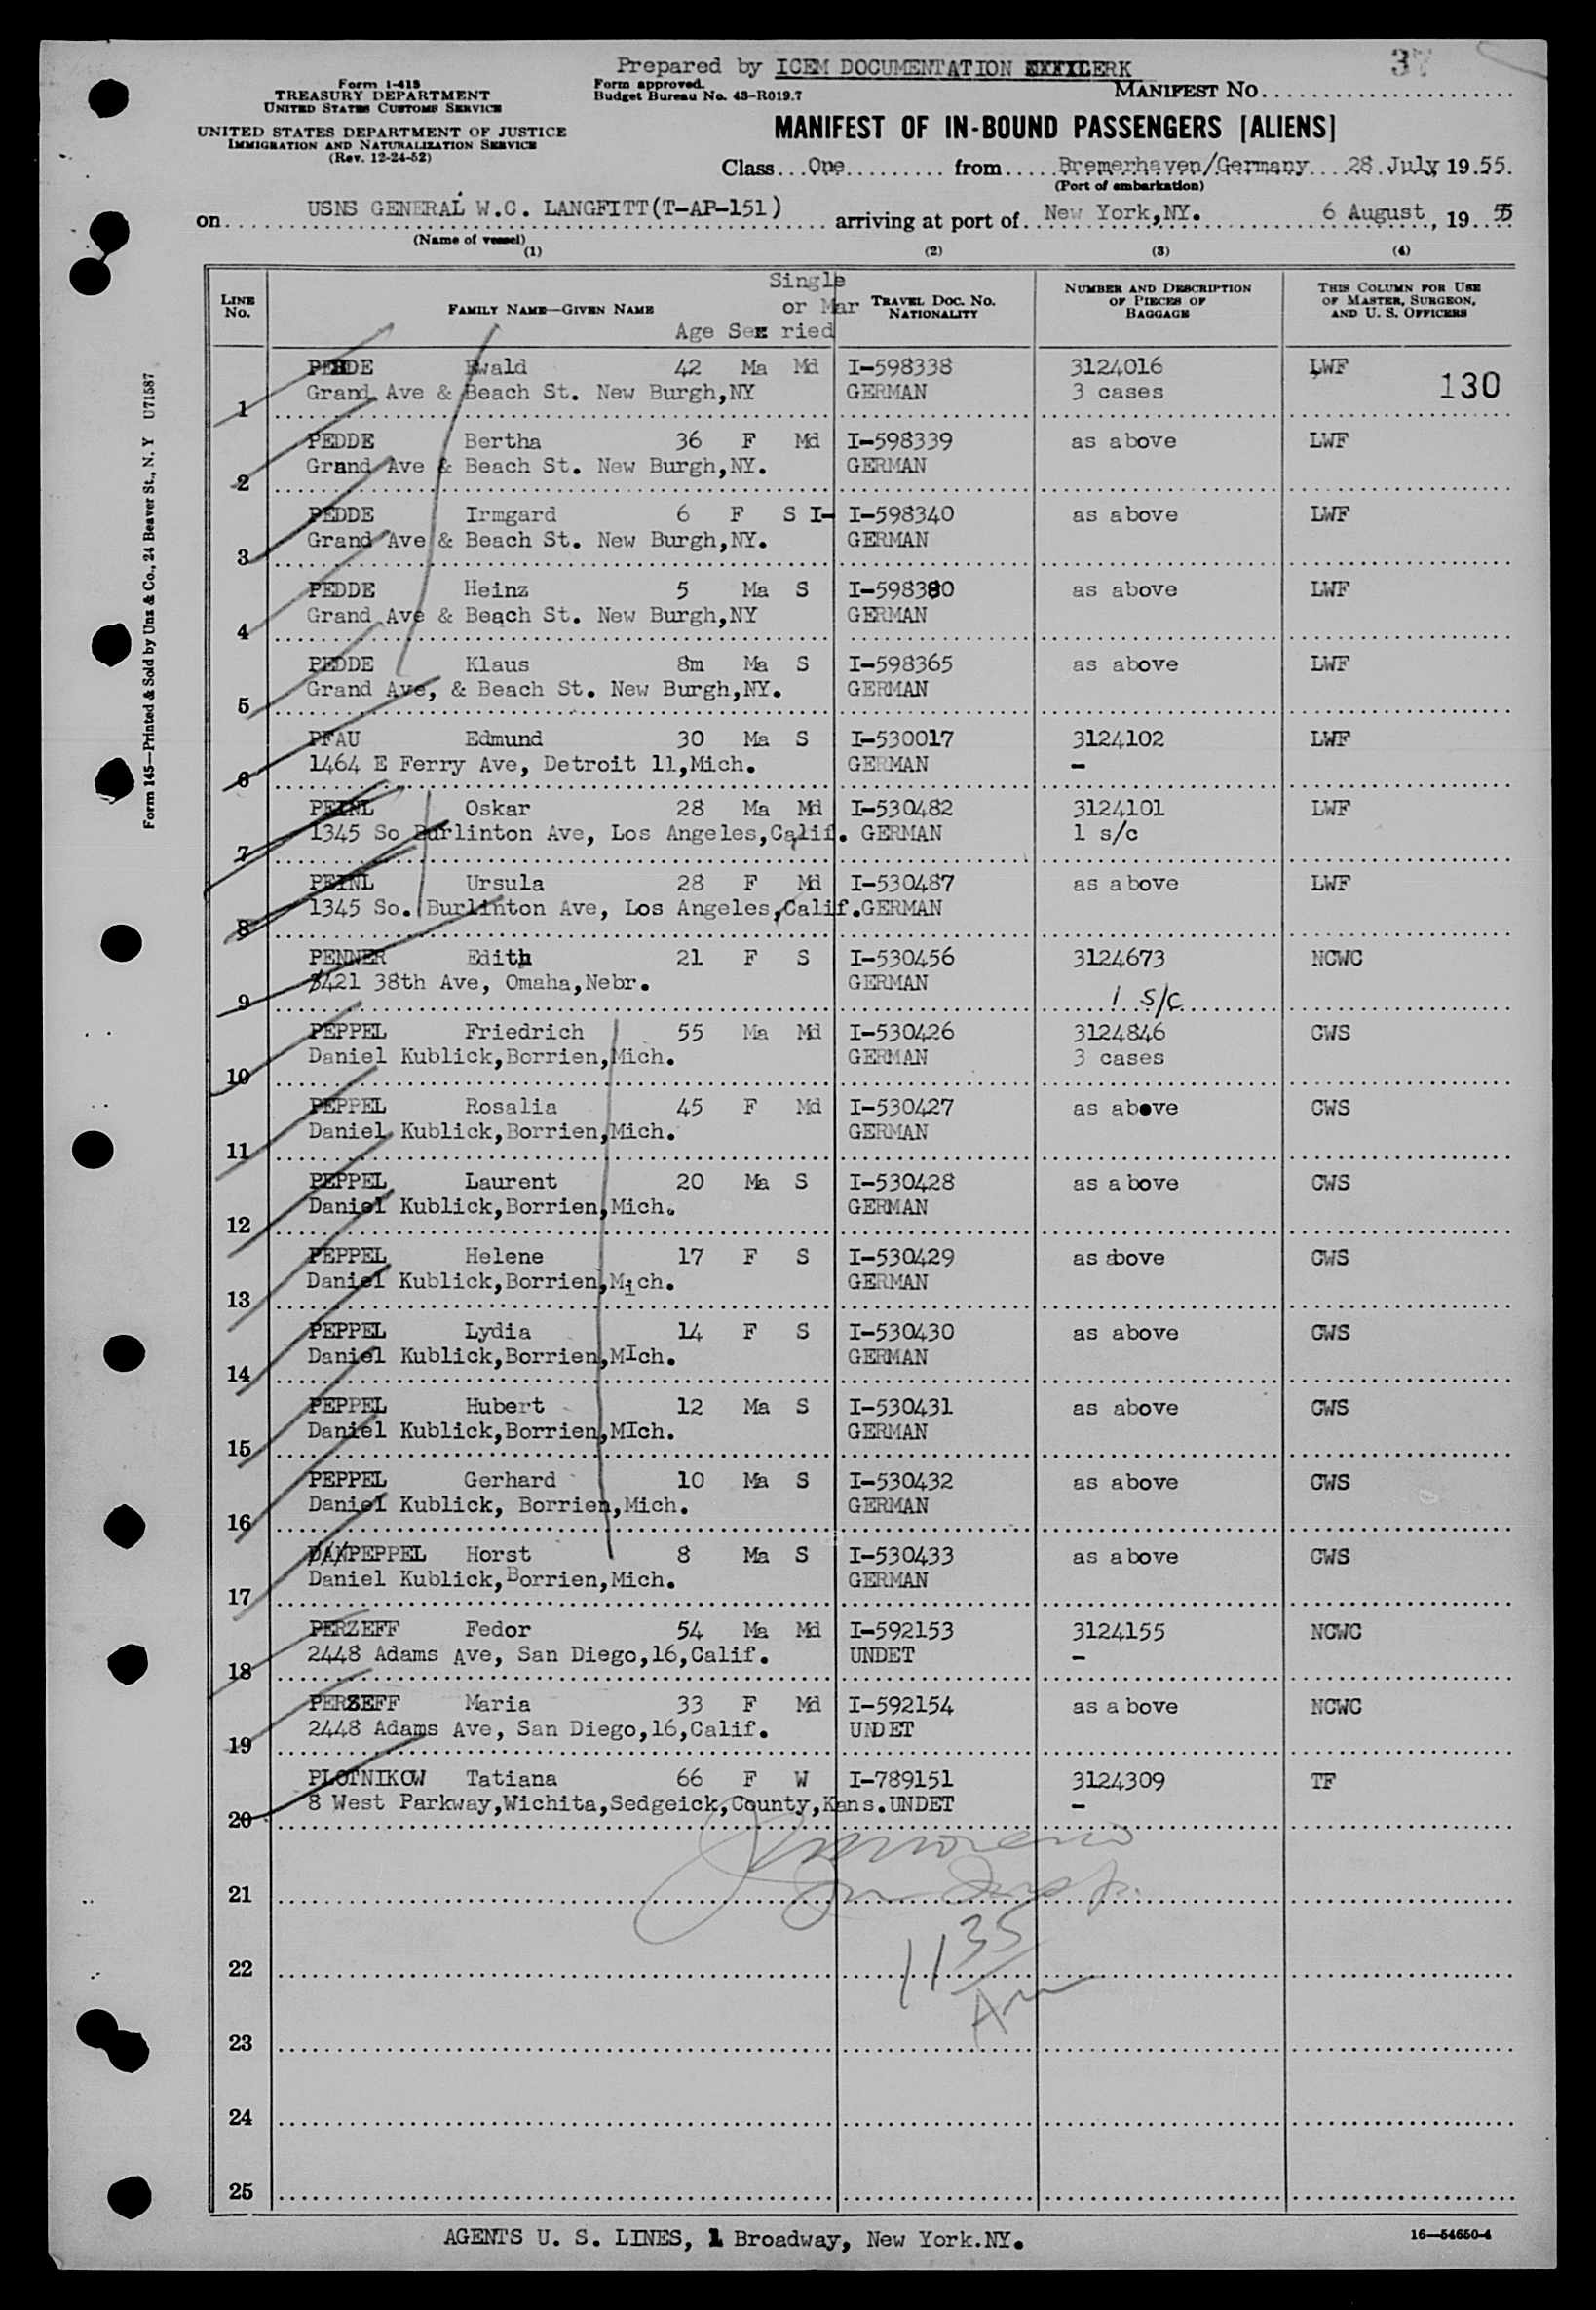 Prepared by ICEM DOCUMENTATION CLERK
37
Form I-418
TREASURY DEPARTMENT
UNITED STATES CUSTOMS SERVICE
Form approved.
Budget Bureau No. 43-R019.7
MANIFEST NO.
UNITED STATES DEPARTMENT OF JUSTICE
IMMIGRATION AND NATURALIZATION SERVICE
(Rev. 12-24-52)
MANIFEST OF IN-BOUND PASSENGERS [ALIENS]
Class One from Bremerhaven/Germany 28 July, 1955.
(Port of embarkation)
on USNS GENERAL W.C. LANGFITT(T-AP-151) arriving at port of New York,NY. 6 August, 1955
(Name of vessel)
(1) (2) (3) (4)
LINE No. FAMILY NAME—GIVEN NAME Age Sex Single or Married TRAVEL DOC. NO. NATIONALITY NUMBER AND DESCRIPTION OF PIECES OF BAGGAGE THIS COLUMN FOR USE OF MASTER, SURGEON, AND U. S. OFFICERS
PEDDE Ewald 42 Ma Md I-598338 3124016 LWF
1 Grand Ave & Beach St. New Burgh,NY GERMAN 3 cases 130
PEDDE Bertha 36 F Md I-598339 as above LWF
2 Grand Ave & Beach St. New Burgh,NY. GERMAN
PEDDE Irmgard 6 F S I- I-598340 as above LWF
3 Grand Ave & Beach St. New Burgh,NY. GERMAN
PEDDE Heinz 5 Ma S I-598380 as above LWF
4 Grand Ave & Beach St. New Burgh,NY GERMAN
PEDDE Klaus 8m Ma S I-598365 as above LWF
5 Grand Ave, & Beach St. New Burgh,NY. GERMAN
PFAU Edmund 30 Ma S I-530017 3124102 LWF
6 1464 E Ferry Ave, Detroit 11,Mich. GERMAN -
PEINL Oskar 28 Ma Md I-530482 3124101 LWF
7 1345 So Burlinton Ave, Los Angeles,Calif. GERMAN 1 s/c
PEINL Ursula 28 F Md I-530487 as above LWF
8 1345 So. Burlinton Ave, Los Angeles,Calif.GERMAN
PENNER Edith 21 F S I-530456 3124673 NCWC
9 3421 38th Ave, Omaha,Nebr. GERMAN 1 s/c
PEPPEL Friedrich 55 Ma Md I-530426 3124846 CWS
10 Daniel Kublick,Borrien,Mich. GERMAN 3 cases
PEPPEL Rosalia 45 F Md I-530427 as above CWS
11 Daniel Kublick,Borrien,Mich. GERMAN
PEPPEL Laurent 20 Ma S I-530428 as above CWS
12 Daniel Kublick,Borrien,Mich. GERMAN
PEPPEL Helene 17 F S I-530429 as above CWS
13 Daniel Kublick,Borrien,Mich. GERMAN
PEPPEL Lydia 14 F S I-530430 as above CWS
14 Daniel Kublick,Borrien,MIch. GERMAN
PEPPEL Hubert 12 Ma S I-530431 as above CWS
15 Daniel Kublick,Borrien,MIch. GERMAN
PEPPEL Gerhard 10 Ma S I-530432 as above CWS
16 Daniel Kublick, Borrien,Mich. GERMAN
PEPPEL Horst 8 Ma S I-530433 as above CWS
17 Daniel Kublick,Borrien,Mich. GERMAN
PERZEFF Fedor 54 Ma Md I-592153 3124155 NCWC
18 2448 Adams Ave, San Diego,16,Calif. UNDET -
PERZEFF Maria 33 F Md I-592154 as above NCWC
19 2448 Adams Ave, San Diego,16,Calif. UNDET
PLOTNIKOW Tatiana 66 F W I-789151 3124309 TF
20 8 West Parkway,Wichita,Sedgeick,County,Kans.UNDET -
21
22 11 35 Am
23
24
25
AGENTS U. S. LINES, 1 Broadway, New York.NY.
16—54650-4
Form 145—Printed & Sold by Unz & Co., 24 Beaver St., N. Y U71587